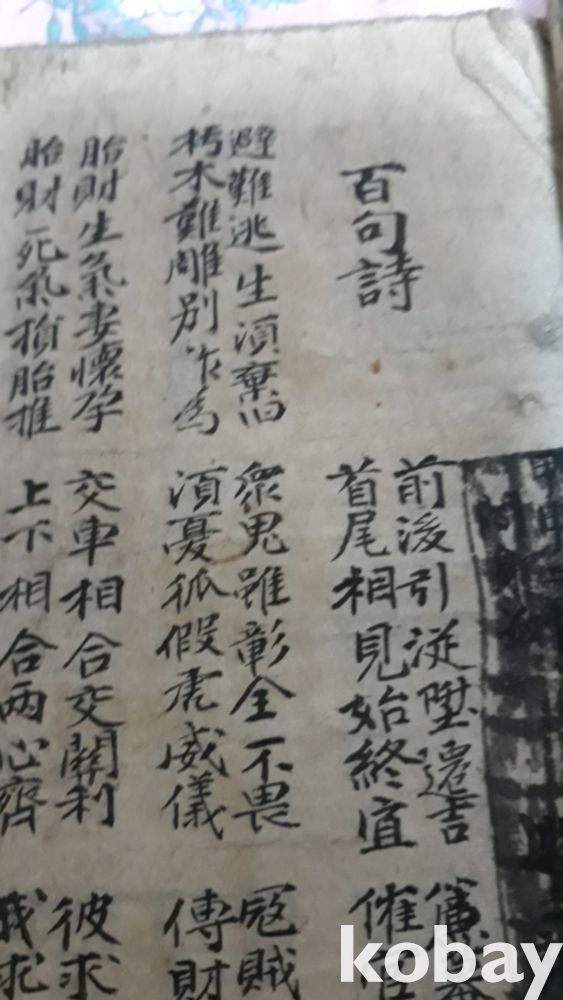 百句詩
前後引從陞遷吉
首尾相見始終宜
簾
催
避難逃生須棄旧
朽木難雕別作為
衆鬼雖彰全不畏
須憂狐假虎威儀
冦賊
傳財
胎財生氣妻懷孕
胎財死氣損胎推
交車相合交關利
上下相合兩心齊
彼求
我求
kobay